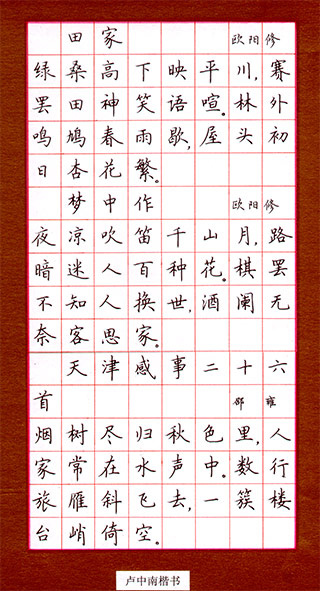 田家 欧阳修
绿桑高下映平川,赛
罢田神笑语喧。林外
鸣鸠春雨歇,屋头初
日杏花繁。
梦中作 欧阳修
夜凉吹笛千山月,路
暗迷人百种花。棋罢
不知人换世,酒阑无
奈客思家。
天津感事二十六
首 邵雍
烟树尽归秋色里,人
家常在水声中。数行
旅雁斜飞去,一簇楼
台峭倚空。
卢中南楷书